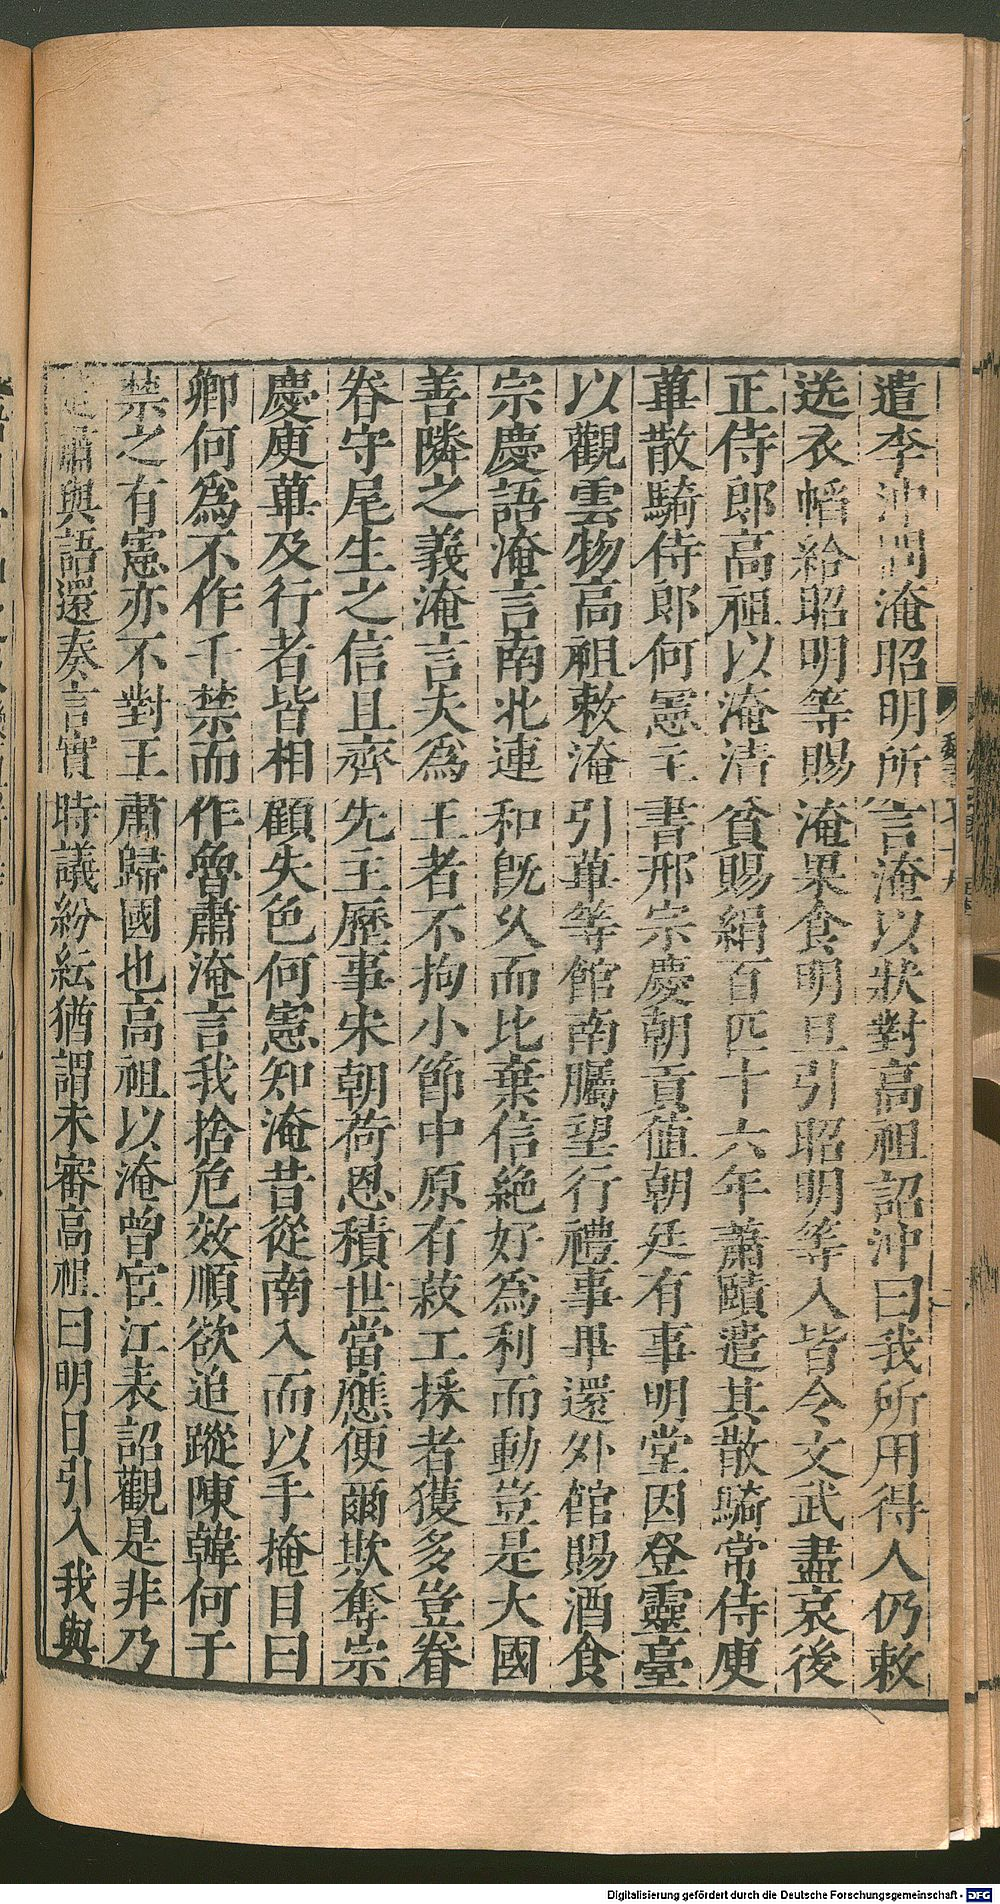 遣李沖問淹昭明所言淹以狀對高祖詔沖曰我所用得人仍敕
送衣幍給昭明等賜淹果食明旦引昭明等入皆令文武盡哀後
正侍郎高祖以淹清貧賜絹百匹十六年蕭賾遣其散騎常侍庾
蓽散騎侍郎何憲主書邢宗慶朝貢值朝廷有事明堂因登靈臺
以觀雲物高祖敕淹引蓽等館南矚望行禮事畢還外館賜酒食
宗慶語淹言南北連和既久而比棄信絕好為利而動豈是大國
善隣之義淹言夫為王者不拘小節中原有菽工採者獲多豈眷
眷守尾生之信且齊先主歷事宋朝荷恩積世當應便爾欺奪宗
慶庾蓽及行者皆相顧失色何憲知淹昔從南入而以手掩目曰
卿何為不作于禁而作魯肅淹言我捨危效順欲追蹤陳韓何于
禁之有憲亦不對王肅歸國也高祖以淹曾宦江表詔觀是非乃
肅與語還奏言實時議紛紜猶謂未審高祖曰明日引入我與
Digitalisierung gefördert durch die Deutsche Forschungsgemeinschaft - DFG